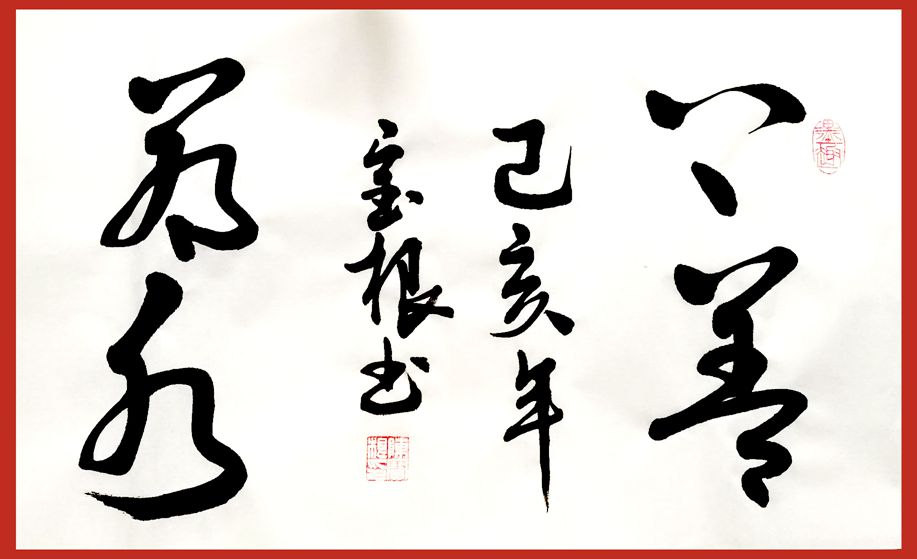 上善
己亥年
宝根书
若水